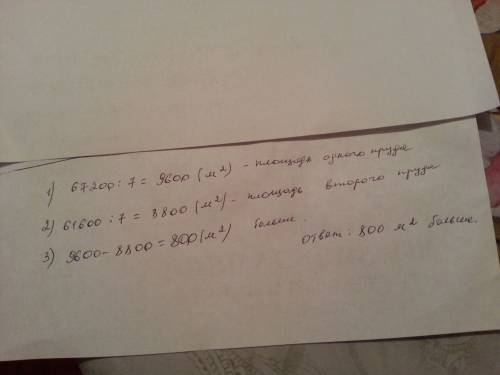 1) 67200 : 7 = 9600 (м²) - площадь одного пруда
2) 61600 : 7 = 8800 (м²) - площадь второго пруда
3) 9600 - 8800 = 800 (м²) больше.
Ответ : 800 м² больше.